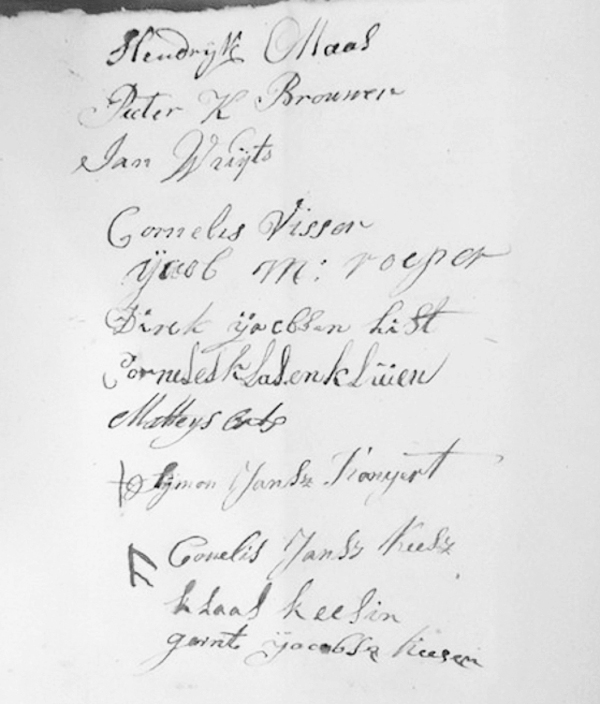 Hendryk Maas
Pieter K Brouwer
Jan Wuijts
Cornelis Visser
ijacob M: roeper
Dirck ijacobsen List
Cornelesklasenklüen
Matteys
Symon Jansz Konyert
Conelis Jansz Keesz
klaas keesin
gerrit ijacobsz Keesen